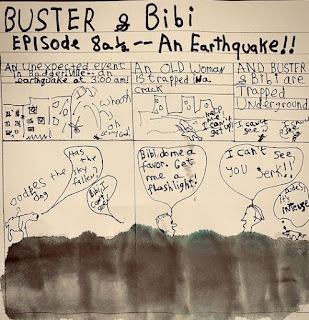 BUSTER & Bibi
EPISode 8a½ -- An Earthquake!!
AN unexpected event
in Badgerville- an
earthquake at 3:00 am!
An OLD Woman
is trapped in a
crack
AND BUSTER
& Bibi are
Trapped
Underground
whoosh
oh
my God!
help me
I can't
get up
I can't
see
I can't
see
Has
the sky
fallen?
oodles the
dog
Bibi, I
can't
see
Bibi do me a
favor. Get
me a
flashlight!
I can't see
you jerk!!
it's
intense